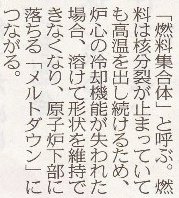 「燃料集合体」と呼ぶ。燃
料は核分裂が止まっていて
も高温を出し続けるため、
炉心の冷却機能が失われた
場合、溶けて形状を維持で
きなくなり、原子炉下部に
落ちる「メルトダウン」に
つながる。